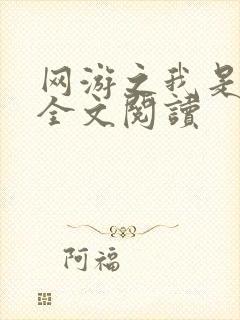 网游之我是
全文閱讀
阿福